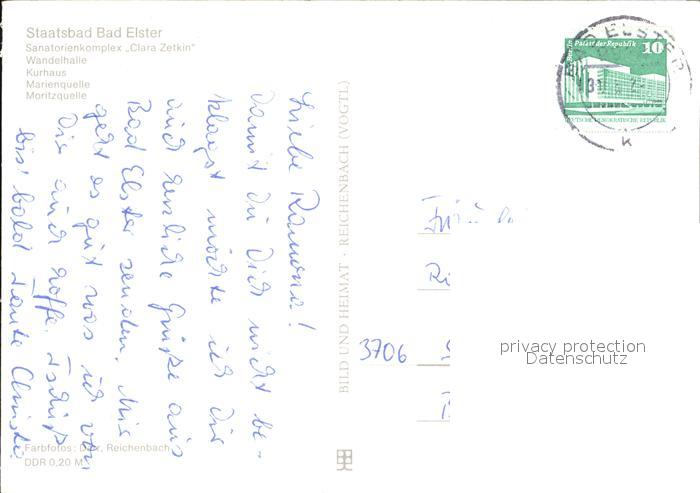 Staatsbad Bad Elster
Sanatorienkomplex „Clara Zetkin"
Wandelhalle
Kurhaus
Marienquelle
Moritzquelle
Liebe Ramona!
Damit du Dich nicht be-
klagst möchte ich dir
auch herzliche Grüße aus
Bad Elster senden. Mir
geht es gut was ich von
Dir auch hoffe. Tschüß
bis bald Tante Christa
Farbfotos: Reichenbach
DDR 0,20 M
BILD UND HEIMAT · REICHENBACH (VOGTL)
BAD ELSTER
k
Berlin, Palast der Republik 10
DEUTSCHE DEMOKRATISCHE REPUBLIK
3706
privacy protection
Datenschutz